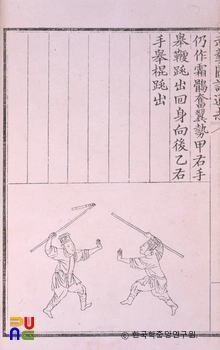 武藝圖譜通志
仍作霜鶻奮翼勢甲右手
擧鞭跳出回身向後乙右
手擧棍跳出
PUAC
© 한국학중앙연구원